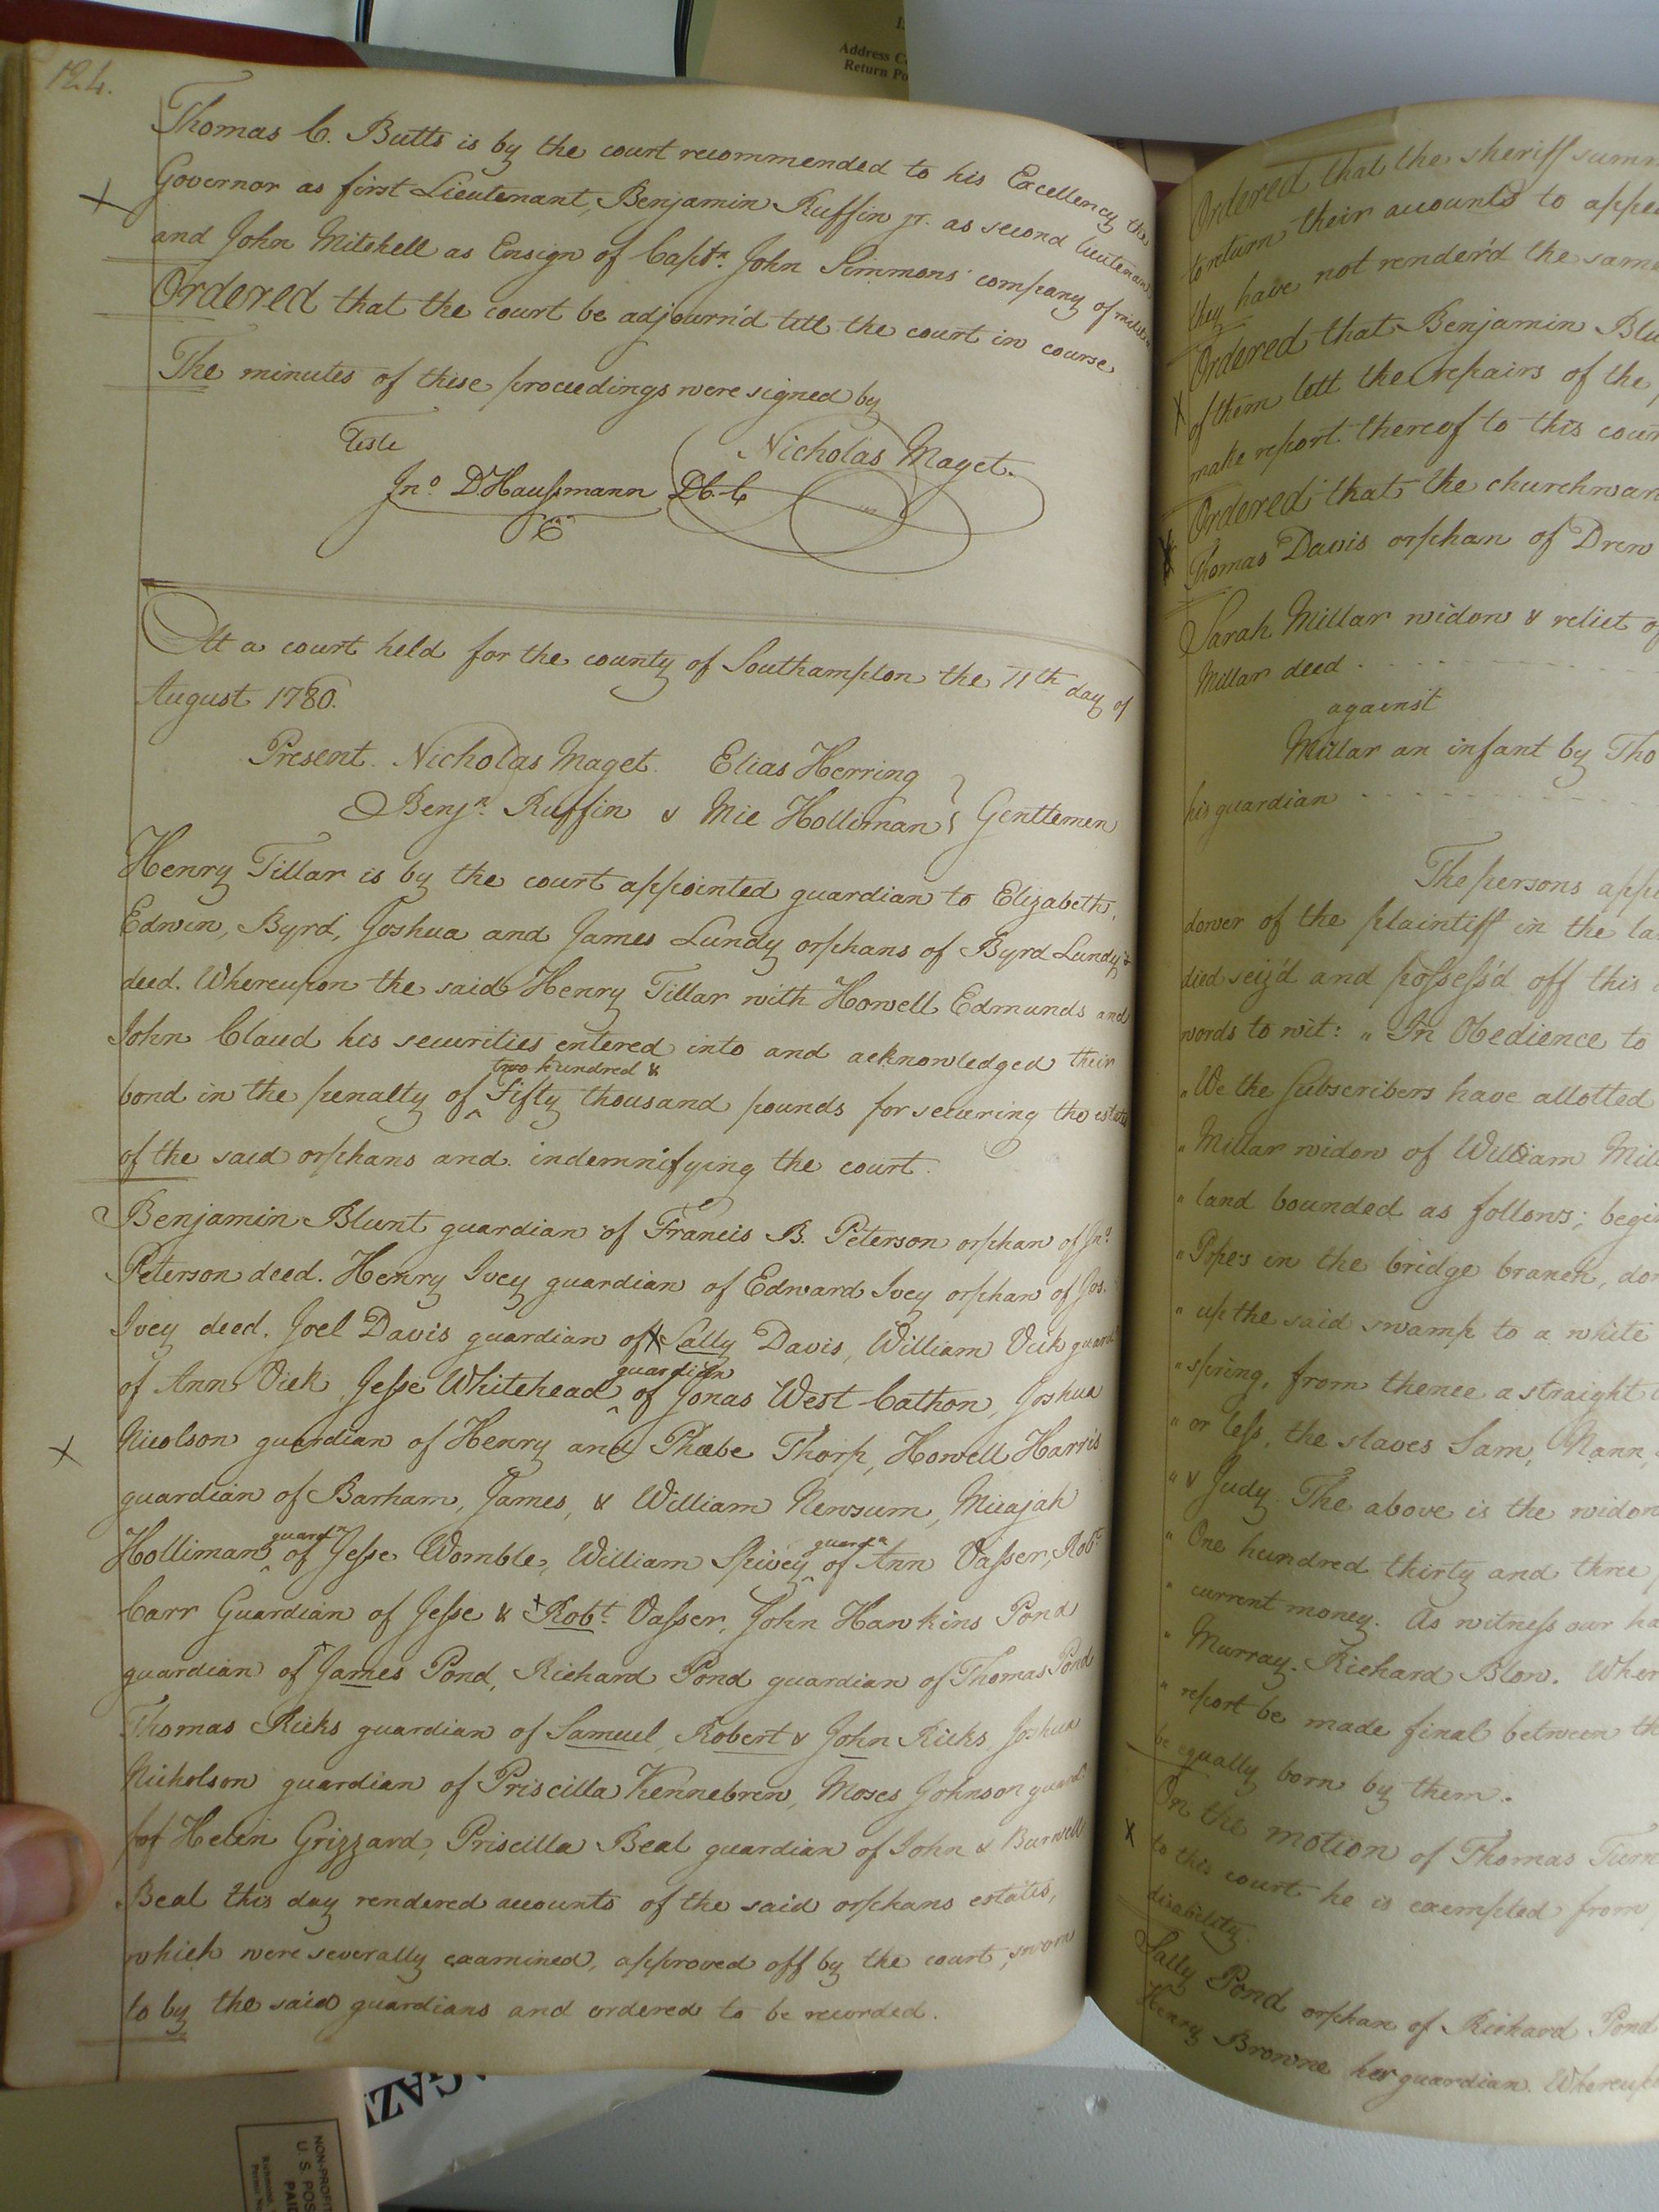 124.
Thomas C. Butts is by the court recommended to his Excellency the
Governor as first Lieutenant, Benjamin Ruffin jr. as second lieutenant
and John Mitchell as Ensign of Captn. John Simmons' company of militia
Ordered that the court be adjourn'd till the court in course
The minutes of these proceedings were signed by
Teste
Nicholas Maget.
Jno. D. Haussmann D.C.C
At a court held for the county of Southampton the 11th day of
August 1780.
Present. Nicholas Maget. Elias Herring
Benjn. Ruffin & Mic Holliman } Gentlemen
Henry Tillar is by the court appointed guardian to Elizabeth,
Edwin, Byrd, Joshua and James Lundy orphans of Byrd Lundy
deed. Whereupon the said Henry Tillar with Howell Edmunds and
John Claud his securities entered into and acknowledged their
two hundred &
bond in the penalty of ^ Fifty thousand pounds for securing the estate
of the said orphans and indemnifying the court.
Benjamin Blunt guardian of Francis B. Peterson orphan of Jno.
Peterson deed. Henry Ivey guardian of Edward Ivey orphan of Jos.
Ivey deed. Joel Davis guardian of Sally Davis, William Vick guard
guardian
of Ann Vick Jesse Whitehead ^ of Jonas West Cathon, Joshua
Nicolson guardian of Henry and Phœbe Thorp, Howell Harris
guardian of Barham, James, & William Newsum, Micajah
guardn guardn
Holliman ^ of Jesse Womble, William Spivey ^ of Ann Vasser, Robt
Carr Guardian of Jesse & Robt. Vasser, John Hawkins Pond
guardian of James Pond, Richard Pond guardian of Thomas Pond
Thomas Ricks guardian of Samuel, Robert & John Ricks, Joshua
Nicholson guardian of Priscilla Kennebrew, Moses Johnson guard.
of Helen Grizzard, Priscilla Beal guardian of John & Burwell
Beal this day rendered accounts of the said orphans estates,
which were severally examined, approved off by the court, sworn
to by the said guardians and ordered to be recorded.
Ordered that the sheriff summ
to return their accounts to appea
they have not render'd the same
Ordered that Benjamin Blu
of them lett the repairs of the
make report thereof to this cour
Ordered that the churchwar
Thomas Davis orphan of Drew
Sarah Millar widow & relict of
Millar deed
against
Millar an infant by Tho
his guardian
The persons appo
dower of the plaintiff in the la
died seiz'd and possess'd off this
words to wit: „ In Obedience to
„ We the Subscribers have allotted
„ Millar widow of William Mill
„ land bounded as follows; begin
„ Pope's in the bridge branch, dow
„ up the said swamp to a white
„ spring, from thence a straight
„ or less, the slaves Sam, Nann,
„ & Judy. The above is the widow
„ One hundred thirty and three
„ current money. As witness our ha
„ Murray. Richard Blow. Wher
„ report be made final between th
be equally born by them.
On the motion of Thomas Turn
to this court he is exempted from
disability.
Sally Pond orphan of Richard Pond
Henry Browne her guardian. Whereup
Address C
Return Po
GAZ
NON-PROFIT
U. S. POS
PAI
Richmond,
Permit No